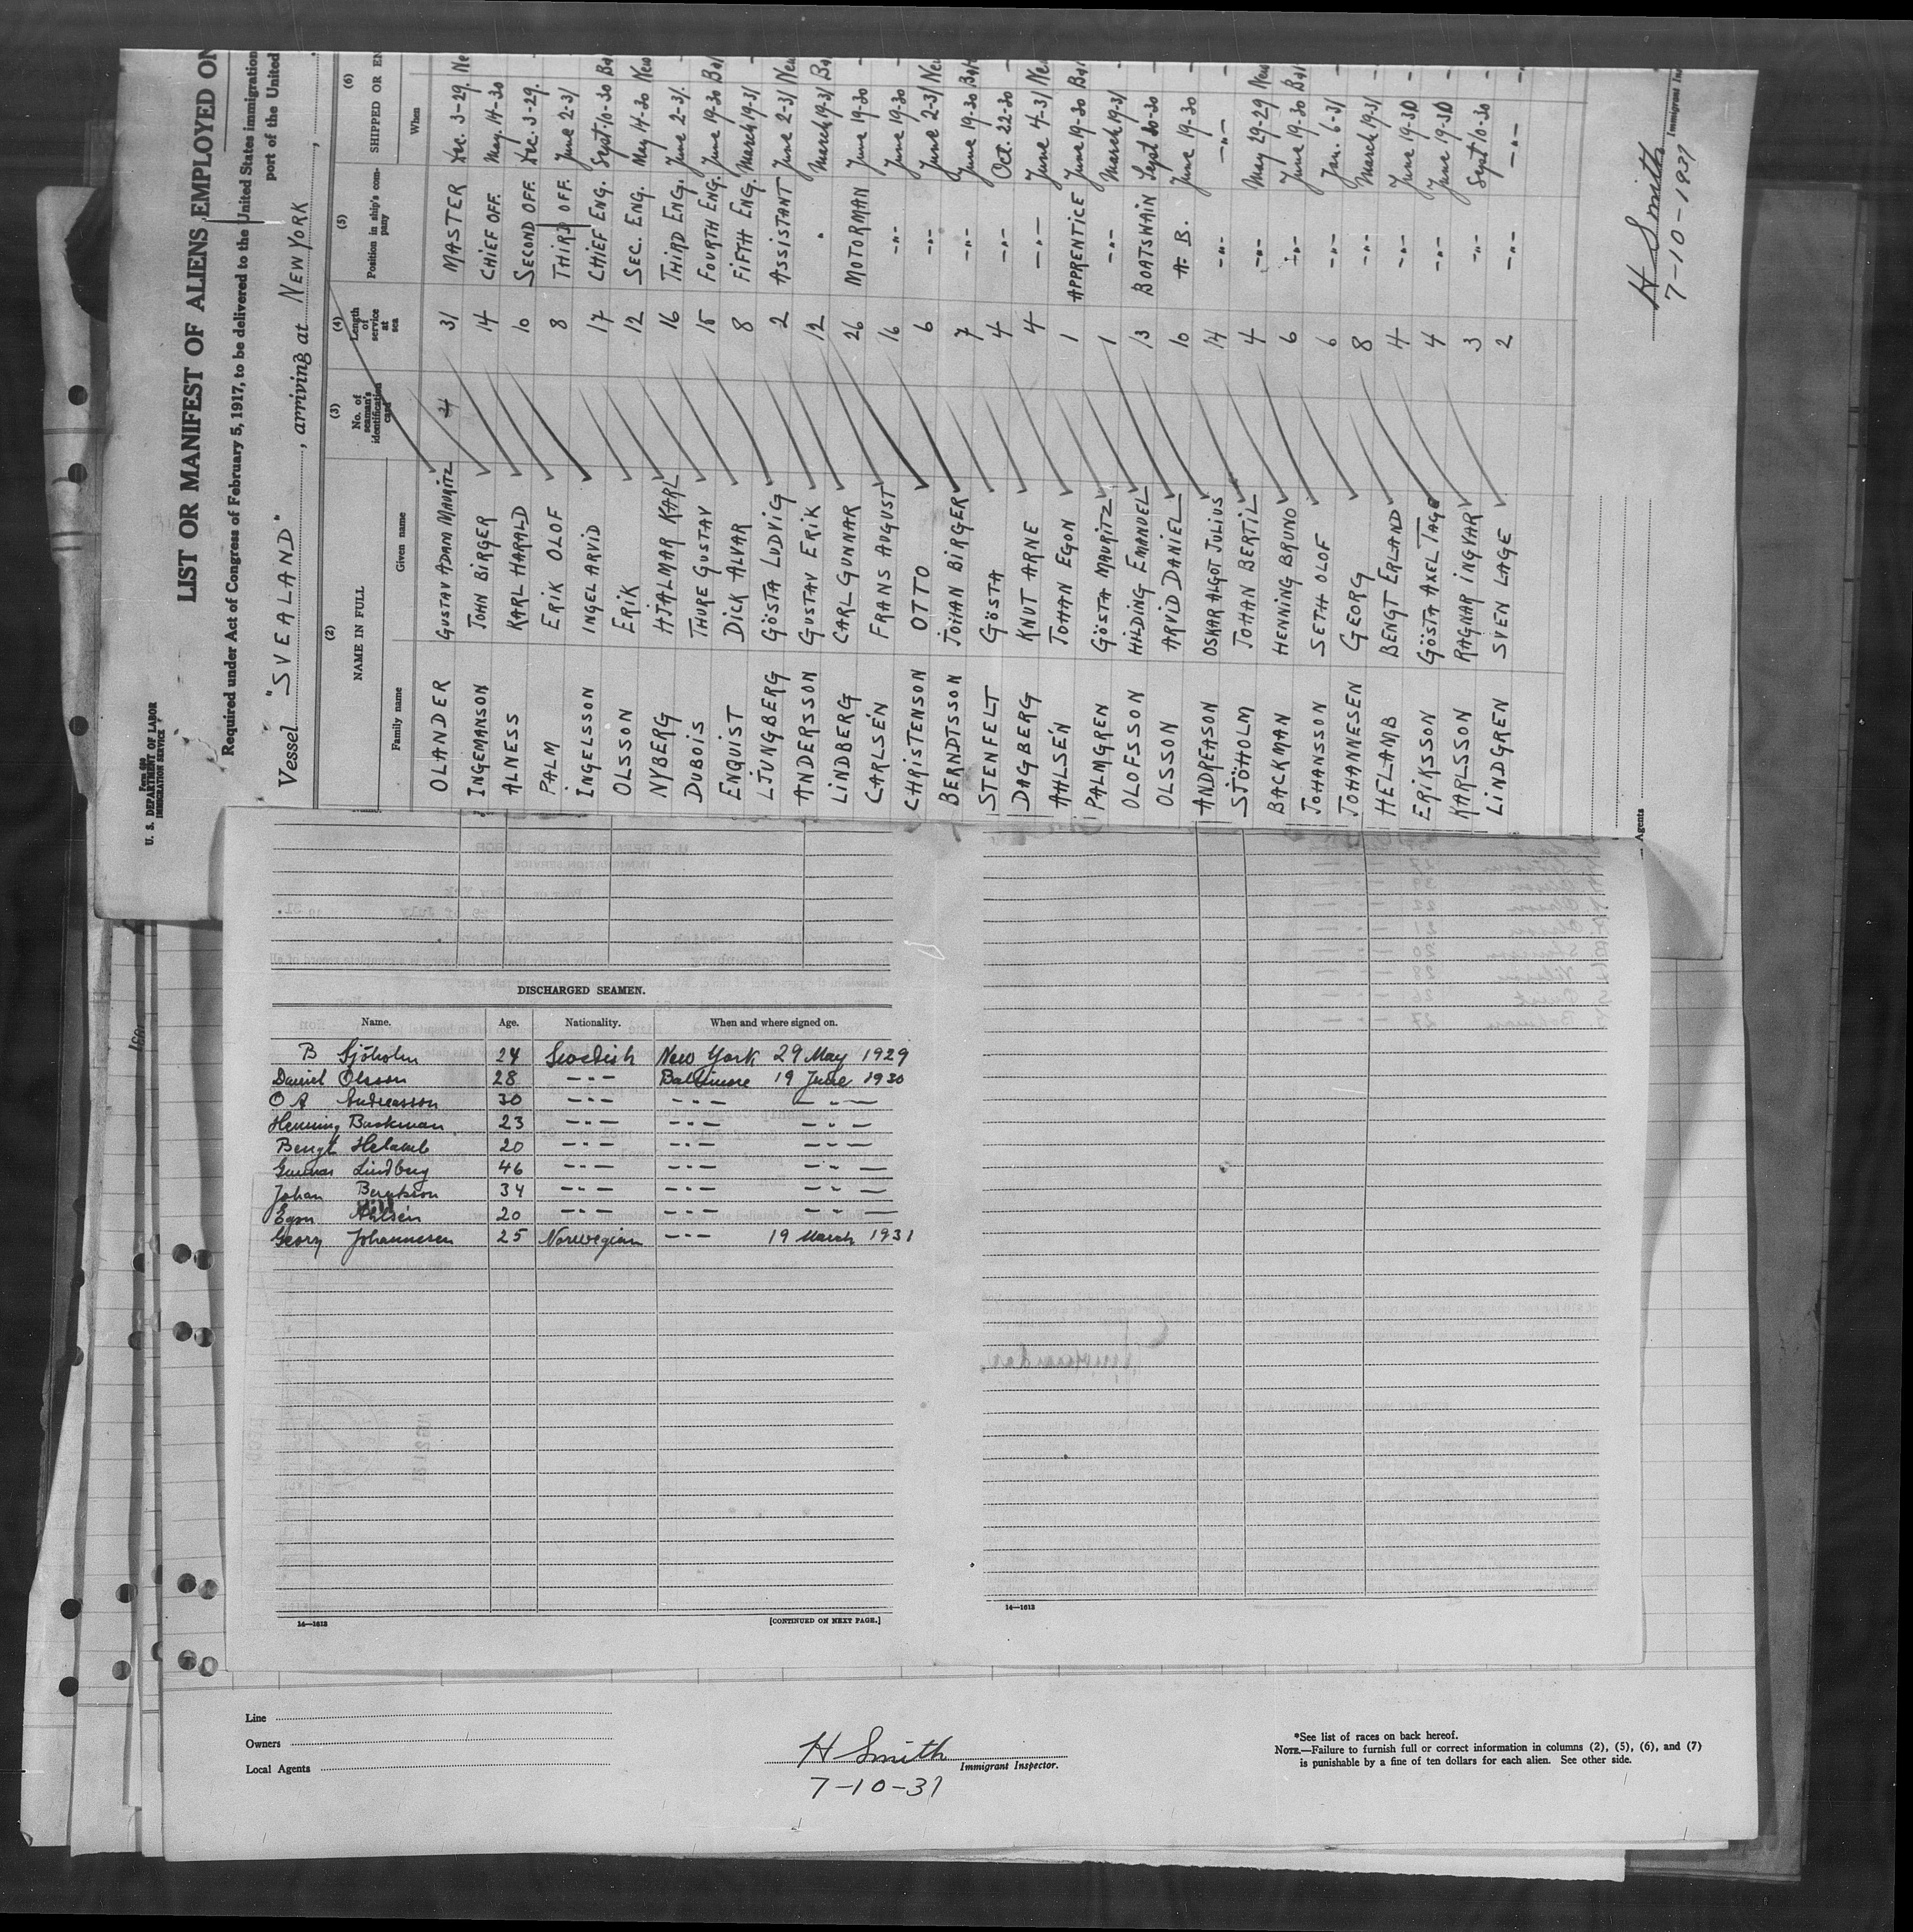 Form 680
U. S. DEPARTMENT OF LABOR
IMMIGRATION SERVICE
LIST OR MANIFEST OF ALIENS EMPLOYED ON
Required under Act of Congress of February 5, 1917, to be delivered to the United States immigration
port of the United
Vessel "SVEALAND", arriving at NEW YORK,
(2) (3) (4) (5) (6)
NAME IN FULL No. of seaman's identification card Length of service at sea Position in ship's company SHIPPED OR EN
Family name Given name When
OLANDER GUSTAV ADAM MAURITZ 31 MASTER Dec. 3-29. Ne
INGEMANSON JOHN BIRGER 14 CHIEF OFF. May. 14-30 -
ALNESS KARL HARALD 10 SECOND OFF. Dec. 3-29. -
PALM ERIK OLOF 8 THIRD OFF. June 2-31 -
INGELSSON INGEL ARVID 17 CHIEF ENG. Sept. 10-30 Bal
OLSSON ERIK 12 SEC. ENG. May 14-30 New
NYBERG HJALMAR KARL 16 THIRD ENG. June 2-31. -
DUBOIS THURE GUSTAV 15 FOURTH ENG. June 19-30 Bal
ENQUIST DICK ALVAR 8 FIFTH ENG. March 19-31 -
LJUNGBERG GÖSTA LUDVIG 2 ASSISTANT June 2-31 New
ANDERSSON GUSTAV ERIK 12 " March 19-31 Bal
LINDBERG CARL GUNNAR 26 MOTORMAN June 19-30 -
CARLSÉN FRANS AUGUST 16 -"- June 19-30 -
CHRISTENSON OTTO 6 -"- June 2-31 New
BERNDTSSON JOHAN BIRGER 7 -"- June 19-30 Balt
STENFELT GÖSTA 4 -"- Oct. 22-30 -
DAGBERG KNUT ARNE 4 -"- June 4-31 New
AHLSÉN JOHAN EGON 1 APPRENTICE June 19-30 Bal
PALMGREN GÖSTA MAURITZ 1 -"- March 19-31 -
OLOFSSON HILDING EMANUEL 13 BOATSWAIN Sept 20-30 -
OLSSON ARVID DANIEL 10 A. B. June 19-30 -
ANDREASON OSKAR ALGOT JULIUS 14 -"- -"- -
SJÖHOLM JOHAN BERTIL 4 -"- May 29-29 New
BACKMAN HENNING BRUNO 6 -"- June 19-30 Bal
JOHANSSON SETH OLOF 6 -"- Jan. 6-31 -
JOHANNESEN GEORG 8 -"- March 19-31 -
HELAMB BENGT ERLAND 4 -"- June 19-30 -
ERIKSSON GÖSTA AXEL TAGE 4 -"- June 19-30 -
KARLSSON RAGNAR INGVAR 3 -"- Sept 10-30 -
LINDGREN SVEN LAGE 2 -"- -"- -
Agents
H Smith
7-10-1931
Immigrant In
DISCHARGED SEAMEN.
Name. Age. Nationality. When and where signed on.
B Sjöholm 24 Swedish New York 29 May 1929
Daniel Olsson 28 -"- Baltimore 19 June 1930
O A Andreasson 30 -"- -"- -"-
Henning Backman 23 -"- -"- -"-
Bengt Helamb 20 -"- -"- -"-
Gunnar Lindberg 46 -"- -"- -"-
Johan Berntsson 34 -"- -"- -"-
Egon Ahlsén 20 -"- -"- -"-
Georg Johannesen 25 Norwegian -"- 19 March 1931
14—1613 [CONTINUED ON NEXT PAGE.]
14—1613
Line
Owners
Local Agents
H Smith
Immigrant Inspector.
7-10-31
*See list of races on back hereof.
NOTE.—Failure to furnish full or correct information in columns (2), (5), (6), and (7)
is punishable by a fine of ten dollars for each alien. See other side.